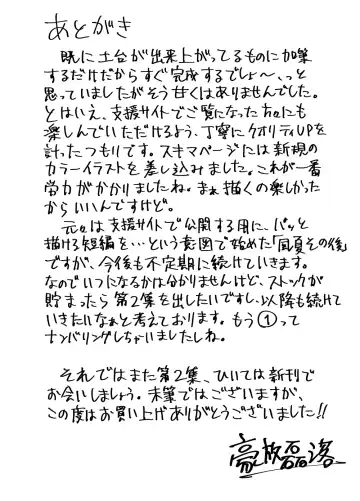 あとがき
既に土台が出来上がってるものに加筆
するだけだからすぐ完成するでしょ〜、っと
思っていましたがそう甘くはありませんでした。
とはいえ、支援サイトでご覧になった方々にも
楽しんでいただけるよう、丁寧にクオリティUPを
計ったつもりです。スキマページには新規の
カラーイラストを差し込みました。これが一番
労力がかかりましたね。まぁ描くの楽しかった
からいいんですけど。
元々は支援サイトで公開する用に、パッと
描ける短編を…という意図で始めた「風夏その後」
ですが、今後も不定期に続けていきます。
なのでいつになるかは分かりませんけど、ストックが
貯まったら第2集を出したいですし、以降も続けて
いきたいなぁと考えております。もう①って
ナンバリングしちゃいましたしね。
それではまた第2集、ひいては新刊で
お会いしましょう。末筆ではございますが、
この度はお買い上げありがとうございました!!